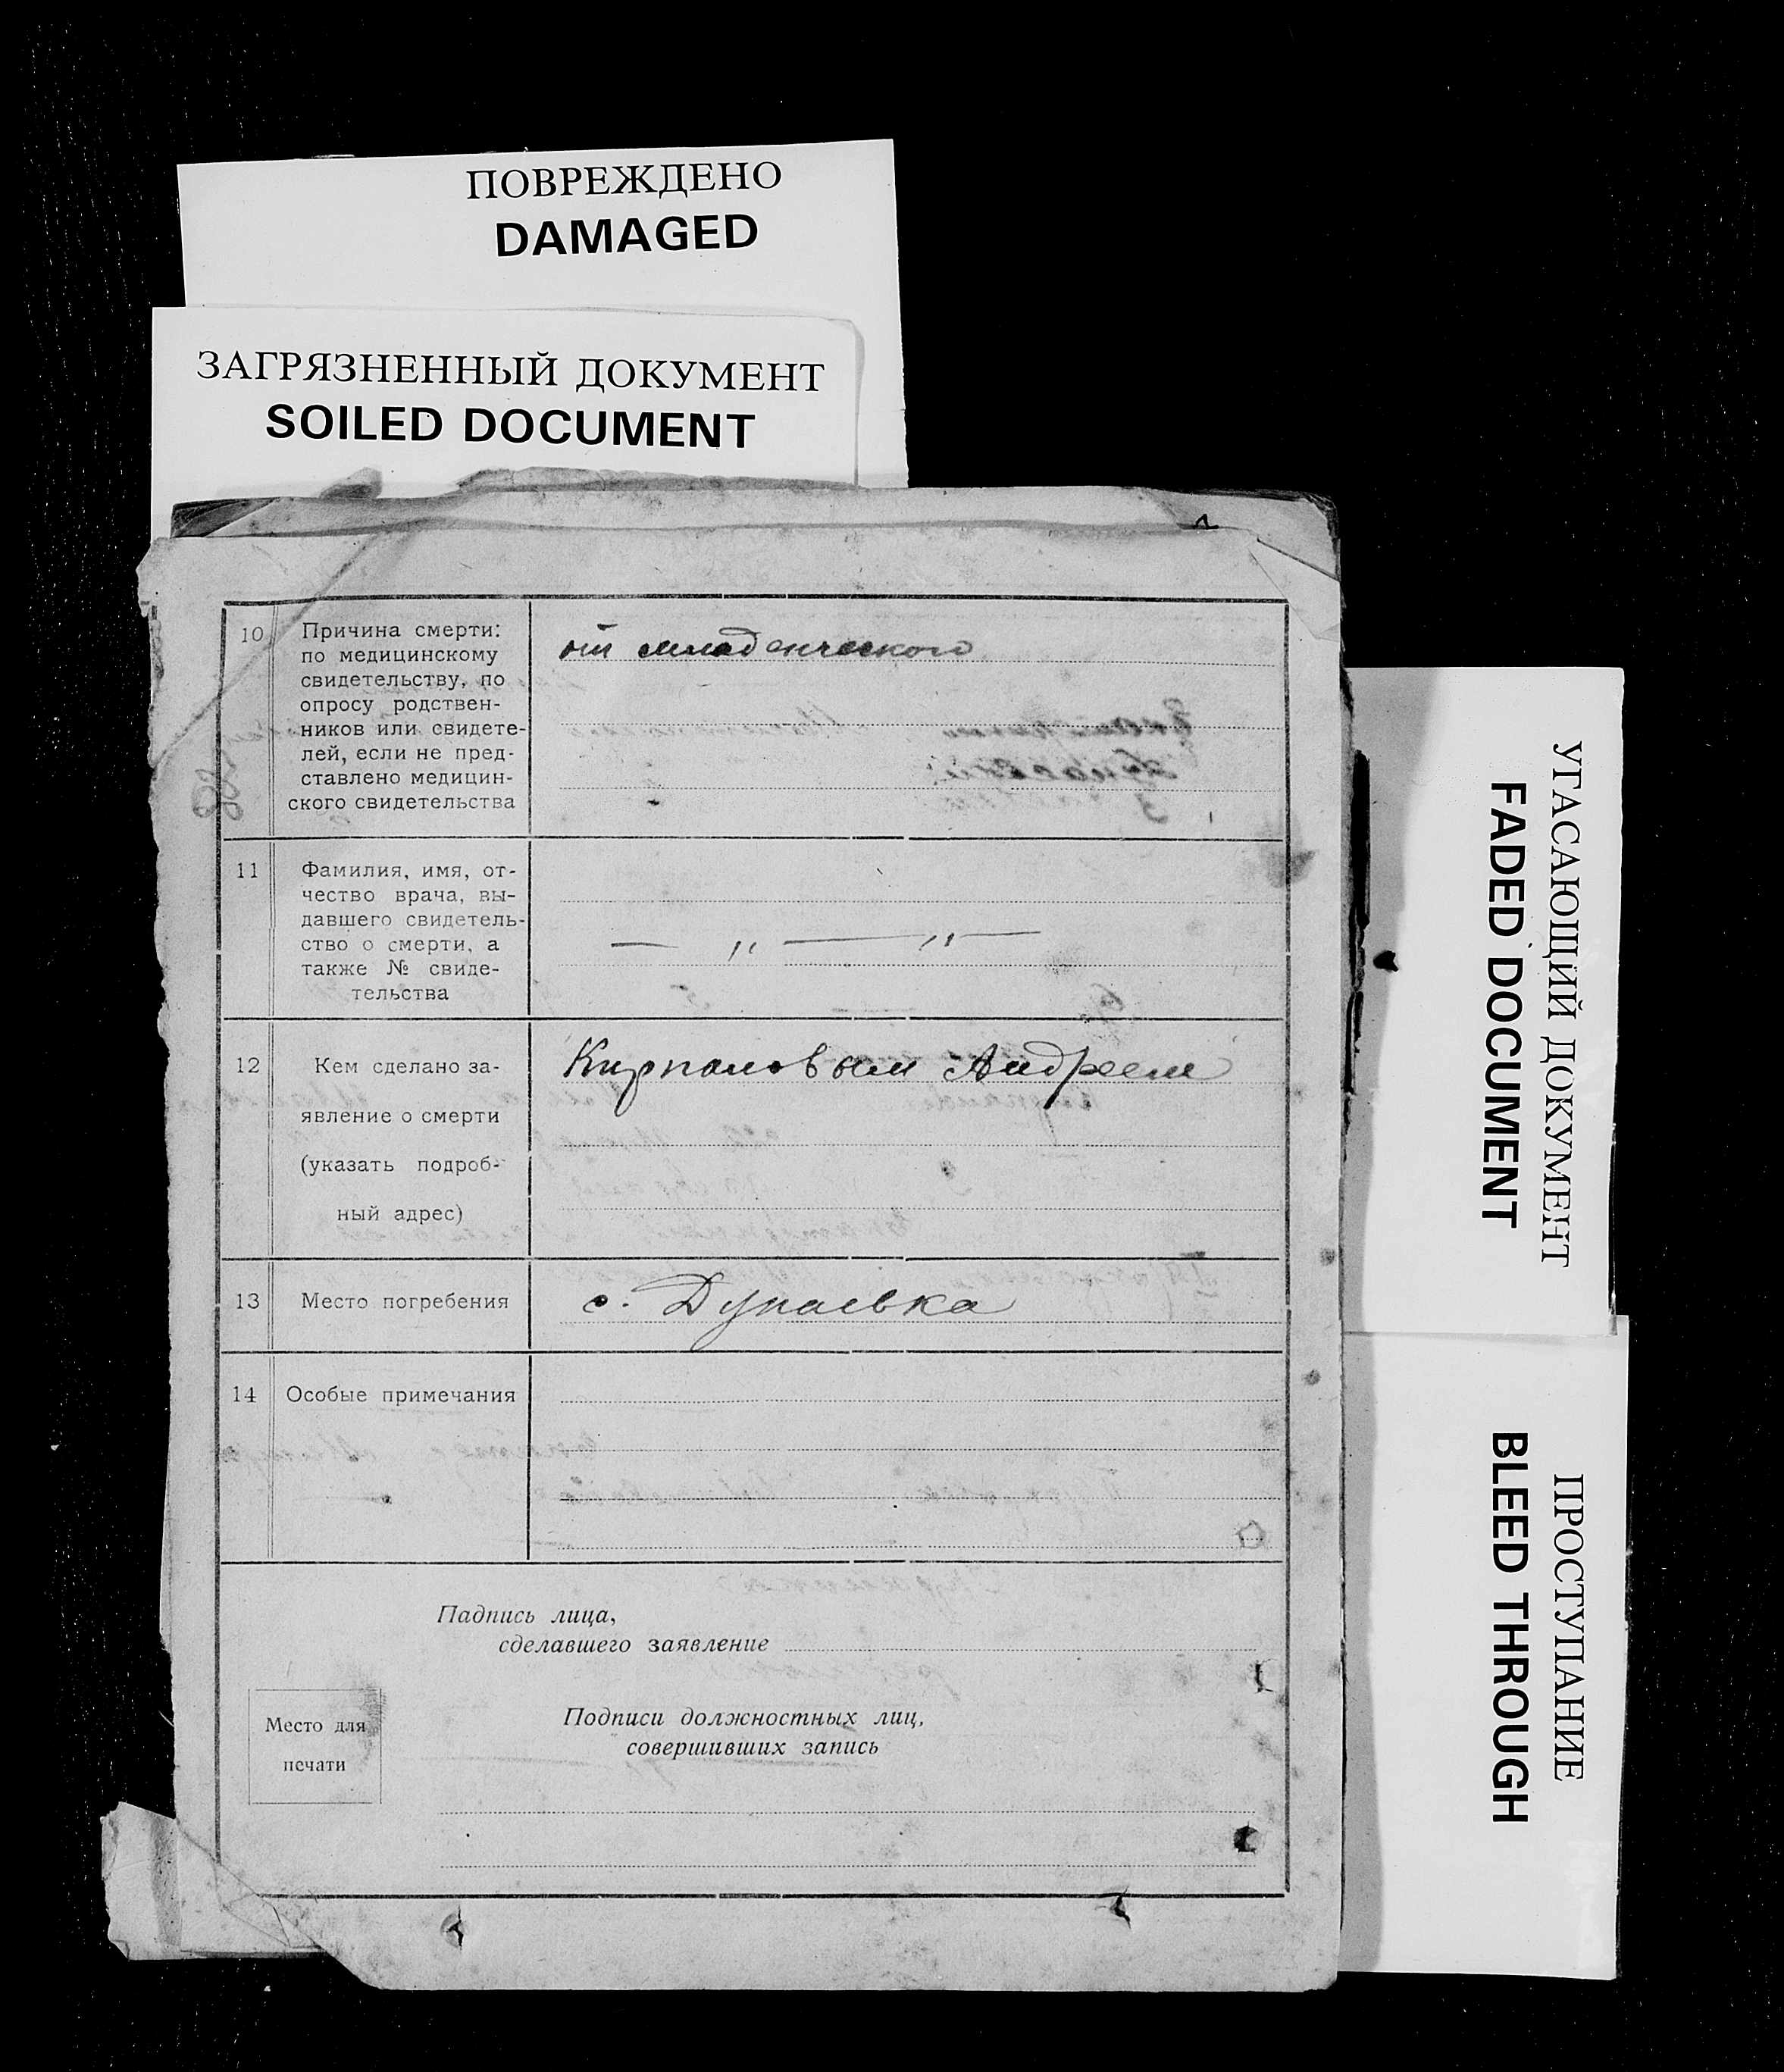 ПОВРЕЖДЕНО
DAMAGED
ЗАГРЯЗНЕННЫЙ ДОКУМЕНТ
SOILED DOCUMENT
10
Причина смерти:
по медицинскому
свидетельству, по
опросу родствен-
ников или свидете-
лей, если не пред-
ставлено медицин-
ского свидетельства
от младенческого
11
Фамилия, имя, от-
чество врача, вы-
давшего свидетель-
ство о смерти, а
также № свиде-
тельства
— „ — „ —
12
Кем сделано за-
явление о смерти
(указать подроб-
ный адрес)
Андреем
13
Место погребения
с. Дунаевка
14
Особые примечания
Падпись лица,
сделавшего заявление
Место для
печати
Подписи должностных лиц,
совершивших запись
УГАСАЮЩИЙ ДОКУМЕНТ
FADED DOCUMENT
ПРОСТУПАНИЕ
BLEED THROUGH